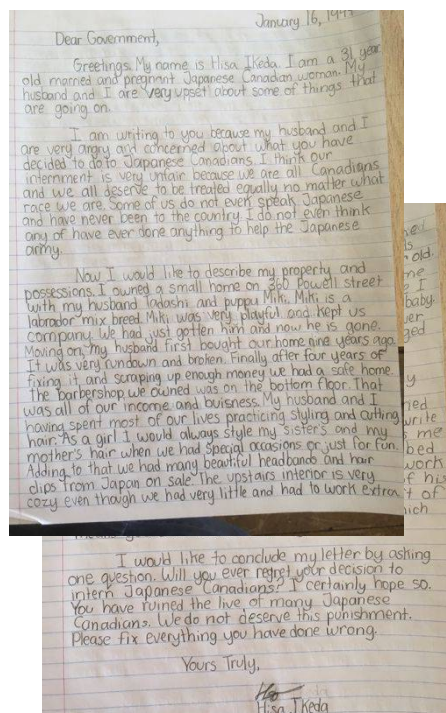 January 16, 19
Dear Government,
Greetings. My name is Hisa Ikeda. I am a 31 year
old married and pregnant Japanese Canadian woman. My
husband and I are very upset about some of things that
are going on.
I am writing to you because my husband and I
are very angry and concerned about what you have
decided to do to Japanese Canadians. I think our
internment is very untair because we are all Canadians
and we all deserve to be treated equally no matter what
race we are. Some of us do not even speak Japanese
and have never been to the country. I do not even think
any of have ever done anything to help the Japanese
army.
Now I would like to describe my property and
possessions. I owned a small home on 360 Powell street
with my husband Tadashi and puppy Miki. Miki is a
labrador mix breed. Miki was very playful and kept us
company. We had just gotten him and now he is gone.
Moving on, my husband first bought our home nine years ago.
It was very rundown and broken. Finally after four years of
fixing it, and scraping up enough money we had a safe home.
The barbershop we owned was on the bottom floor. That
was all of our income and buisness. My husband and I
having spent most of our lives practicing styling and cutting
hair. As a girl I would always style my sister's and my
mother's hair when we had special occasions or just for fun.
Adding to that we had many beautiful headbands and hair
clips from Japan on sale. The upstairs interior is very
cozy even though we had very little and had to work extra
old.
me
I
baby.
write
me
bed
work
of his
of
I would like to conclude my letter by asking
one question. Will you ever regret your decision to
intern Japanese Canadians? I certainly hope so.
You have ruined the live of many Japanese
Canadians. We do not deserve this punishment.
Please fix everything you have done wrong.
Yours Truly,
Hisa Ikeda